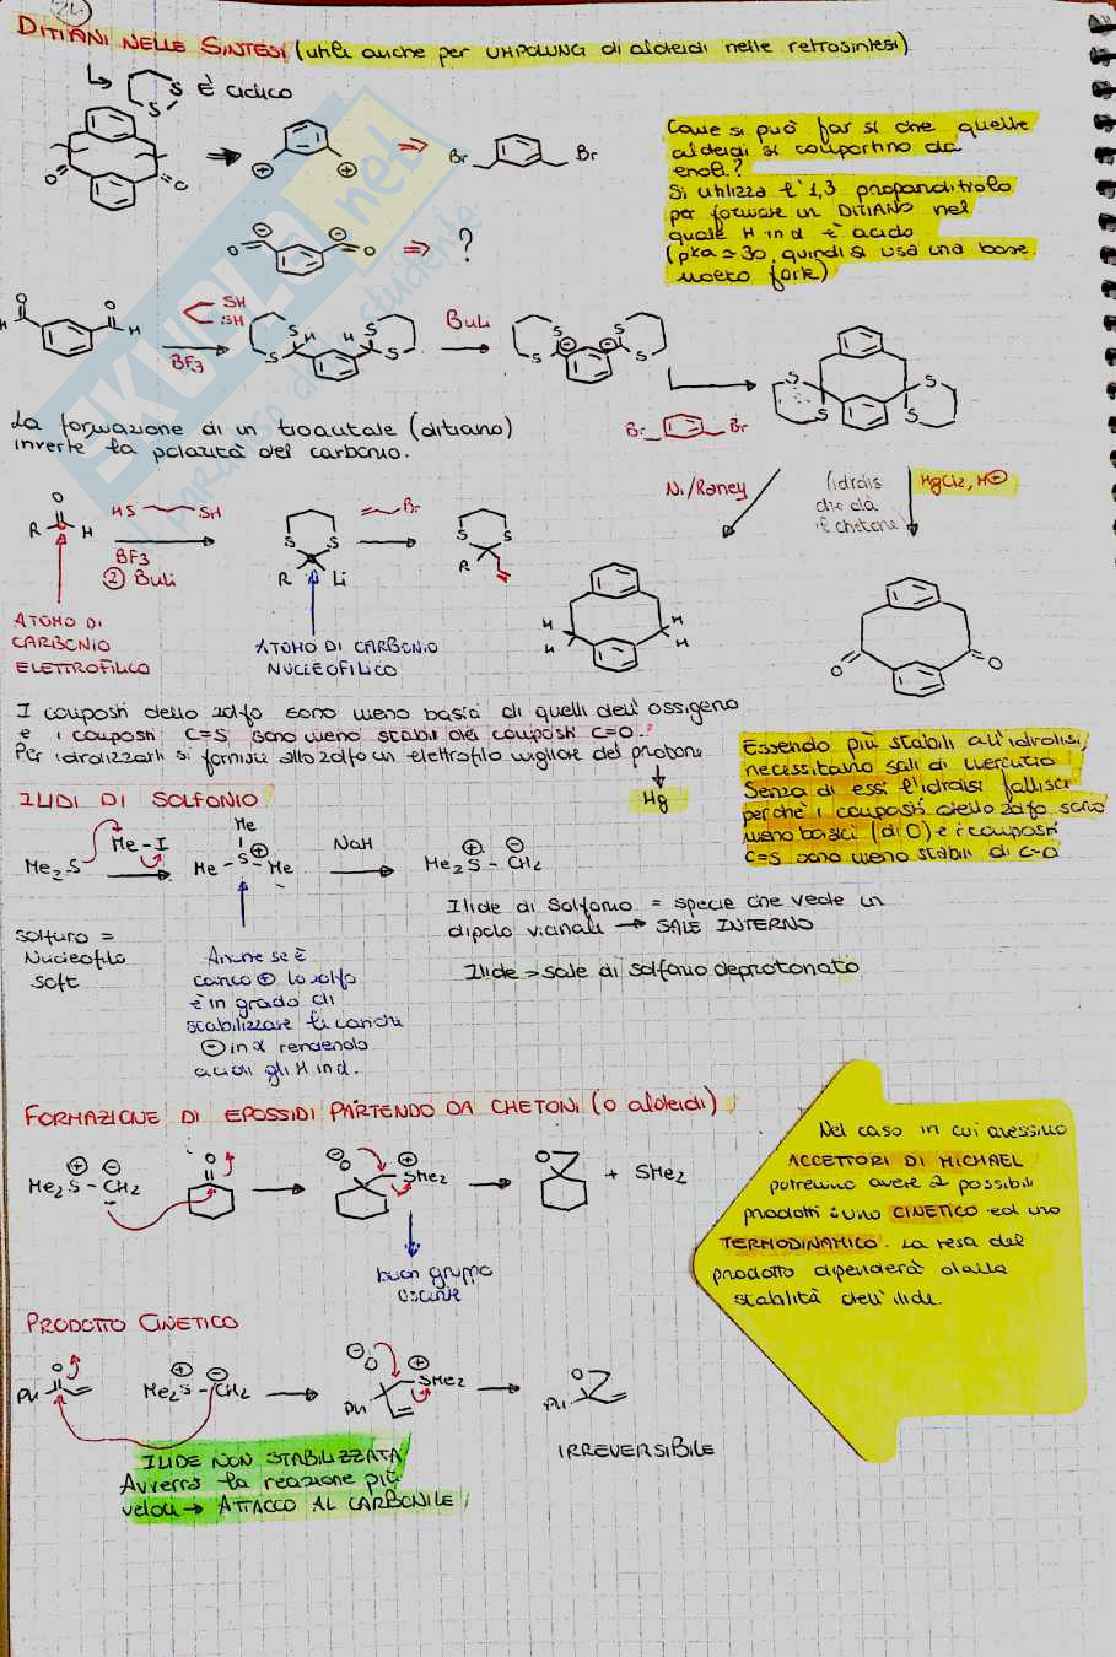 24.
DITIANI NELLE SINTESI (utili anche per UMPOLUNG di aldeidi nelle retrosintesi)
S È ciclico
S
Br Br
O O
O O
?
Come si può far sì che quelle
aldeidi si comportino da
enoli?
Si utilizza l'1,3 propanditiolo
per formare un DITIANO nel
quale H in α è acido
(pKa ≈ 30, quindi si usa una base
molto forte)
O O
H H
SH
SH
BF3
S H H S
S S
BuLi
S S
S S
Br Br
S S
S S
La formazione di un tioacetale (ditiano)
inverte la polarità del carbonio.
Ni/Raney
(idrolisi
che dà
il chetone)
HgCl2, H⊕
O
R H
HS SH
BF3
② BuLi
S S
R Li
Br
S S
R
H H
H H
O O
ATOMO DI
CARBONIO
ELETTROFILICO
ATOMO DI CARBONIO
NUCLEOFILICO
I composti dello zolfo sono meno basici di quelli dell'ossigeno
e i composti C=S sono meno stabili dei composti C=O.
Per idrolizzarli si fornisce allo zolfo un elettrofilo migliore del protone
Hg
Essendo più stabili all'idrolisi,
necessitano sali di mercurio
Senza di essi l'idrolisi fallisce
perchè i composti dello zolfo sono
meno basici (di O) e i composti
C=S sono meno stabili di C=O
ILIDI DI SOLFONIO
Me2S Me-I
Me
Me - S ⊕ - Me
NaH
⊕ ⊖
Me2S - CH2
solfuro =
Nucleofilo
soft
Anche se è
carico ⊕ lo zolfo
è in grado di
stabilizzare le cariche
⊖ in α rendendo
acidi gli H in α.
Ilide di Solfonio = specie che vede un
dipolo vicinale → SALE INTERNO
Ilide → sale di solfonio deprotonato
FORMAZIONE DI EPOSSIDI PARTENDO DA CHETONI (o aldeidi)
⊕ ⊖
Me2S - CH2
O
⊖ O ⊕
SMe2
O
+ SMe2
buon gruppo
uscente
Nel caso in cui avessimo
ACCETTORI DI MICHAEL
potremmo avere 2 possibili
prodotti: uno CINETICO ed uno
TERMODINAMICO. La resa del
prodotto dipenderà dalla
stabilità dell'ilide.
PRODOTTO CINETICO
O
Ph
⊕ ⊖
Me2S - CH2
⊖ O ⊕
SMe2
Ph
O
Ph
IRREVERSIBILE
ILIDE NON STABILIZZATA
Avverrà la reazione più
veloce → ATTACCO AL CARBONILE
SKUOLA.net
il paradiso dello studente